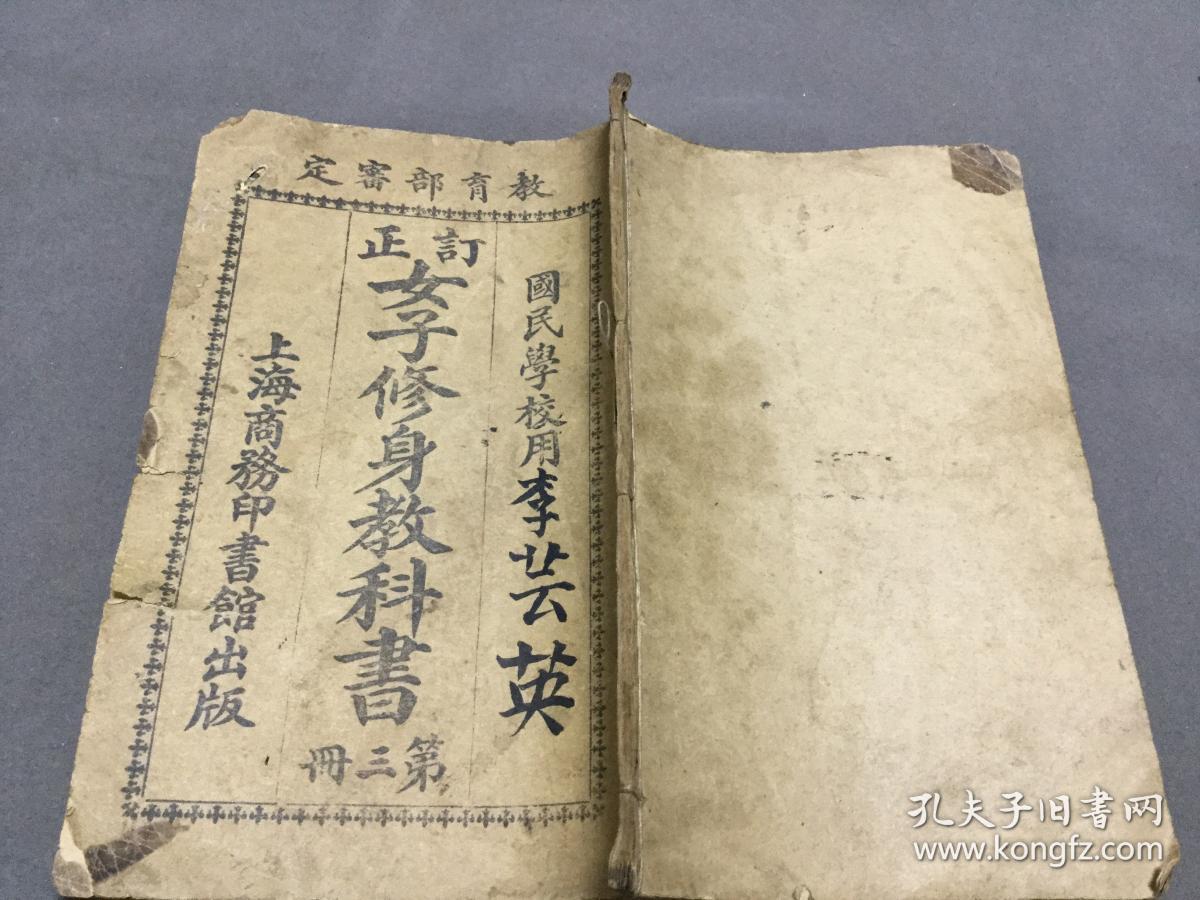 教育部審定
國民學校用
李芸英
訂正
女子修身教科書
第三冊
上海商務印書館出版
孔夫子旧书网
www.kongfz.com